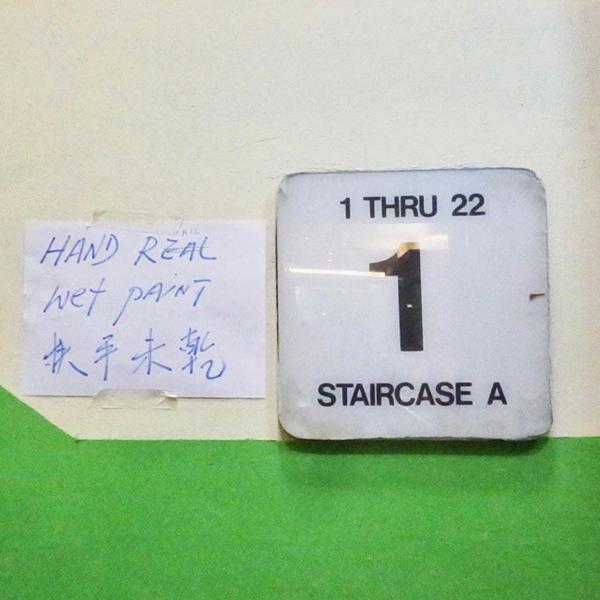 HAND REAL
wet PAINT
扶手未乾
1 THRU 22
1
STAIRCASE A